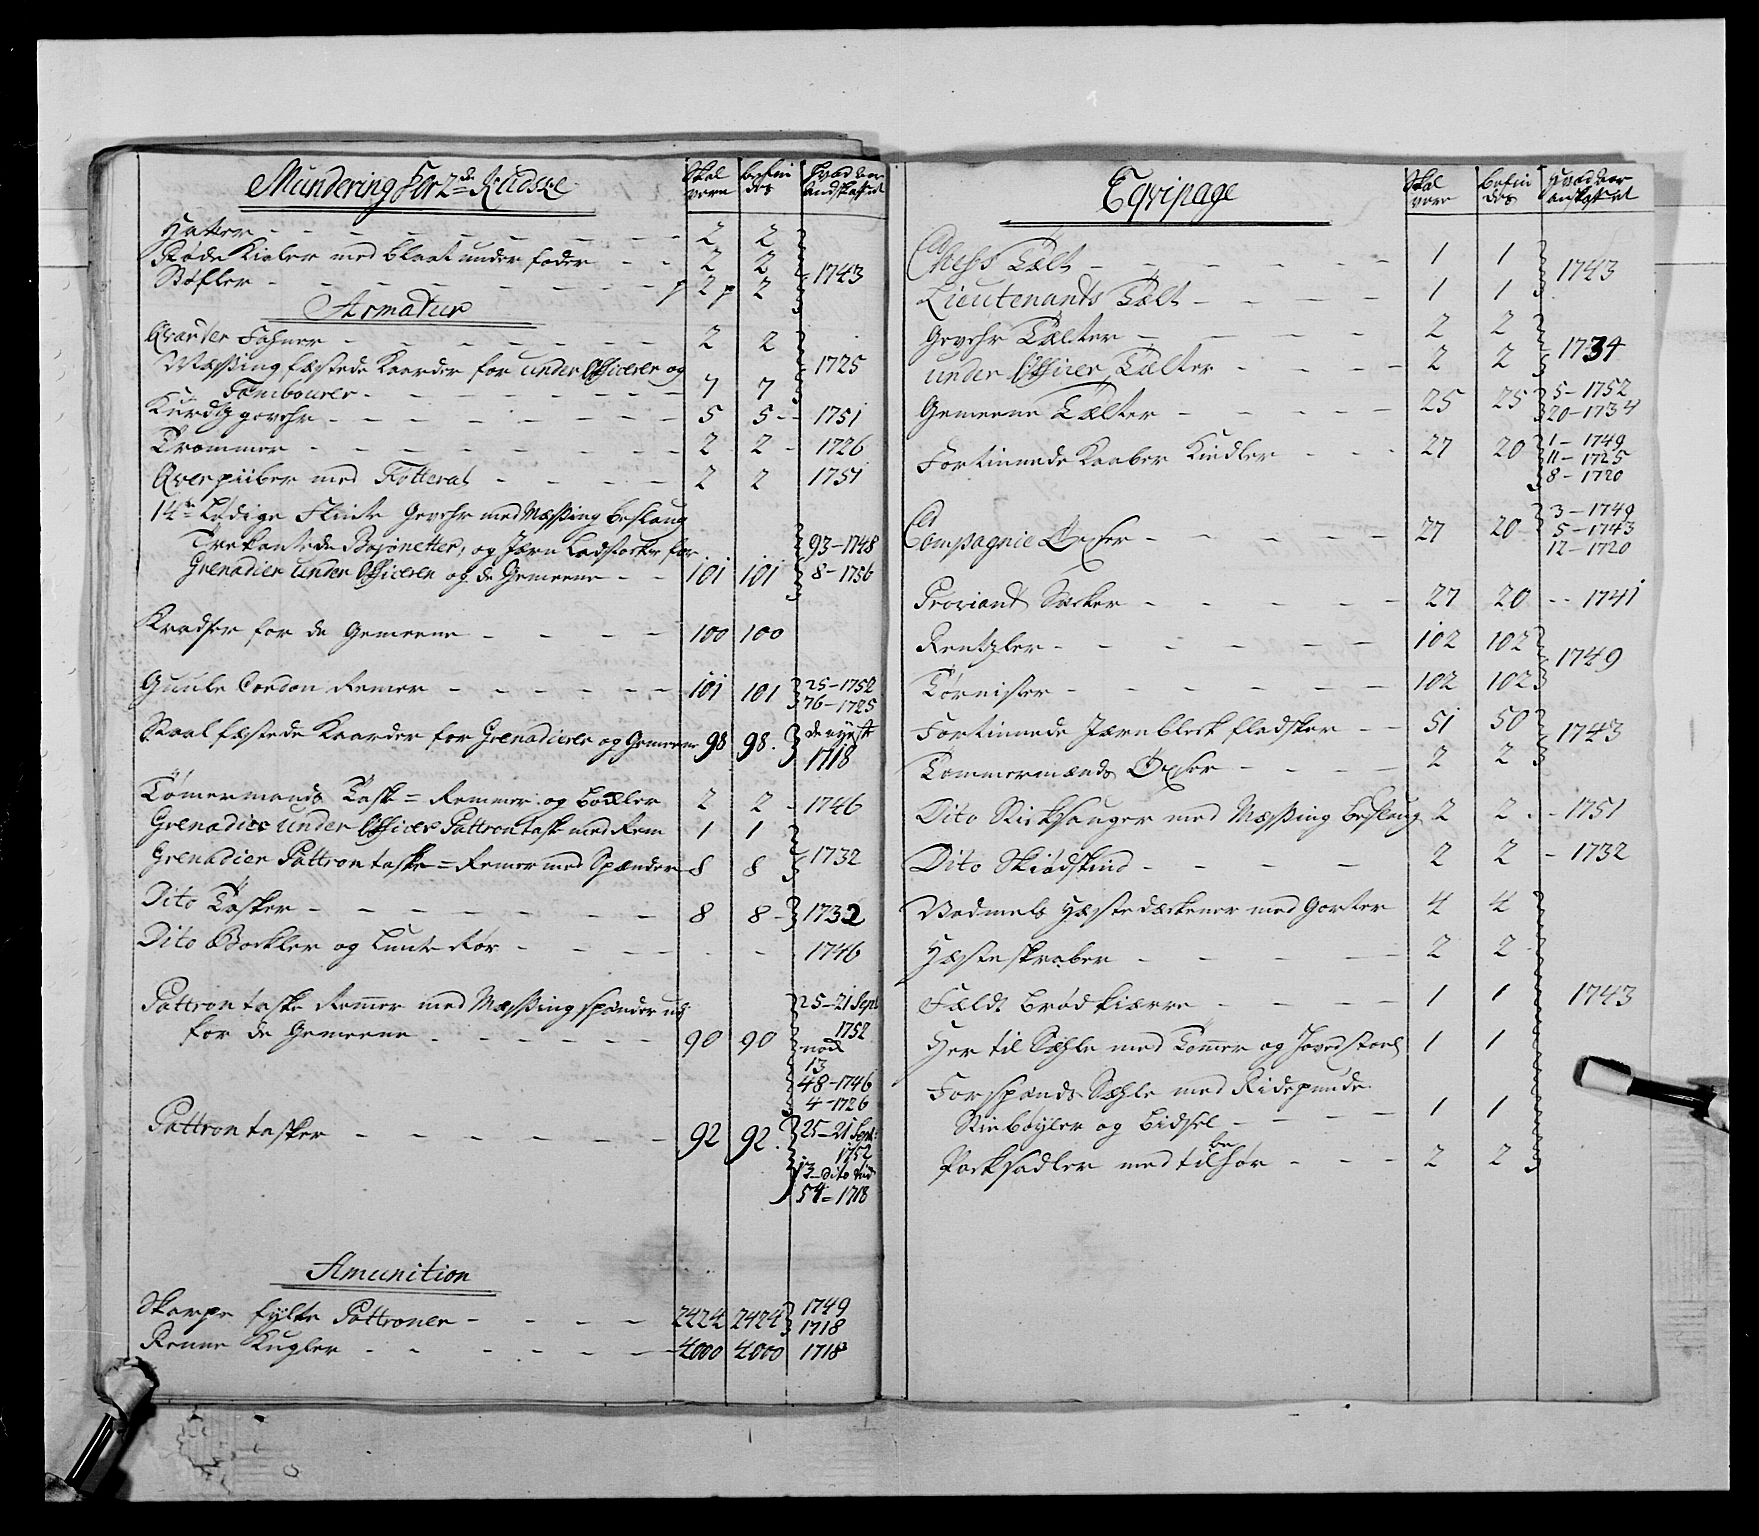 Mundering For 2de Kudske
Skal være
befindes
Hvad Aar andskaffet
Hatter - 2 2
Røde Kioler med blaat underfoder - 2 2 1743
Støfler - p 2 p 2
Armatur
Qvarteer Fahner - 2 2
Mæssing fæstede Kaarder for under Officerer og 1725
Tambourer - 7 7
Kurtz gevehr - 5 5 - 1751
Trommer - 2 2 - 1726
Qverpiiber med Fotteral - 2 2 1751
14n Lødige Flinte Gevehr med Mæssing beslaug
Trekantede Bajonetter, og Jærn Ladstocker for 93-1748
Grenadier under Officeren og de Gemeene - 101 101 8-1756
Kradser for de Gemeene - 100 100
Guule Cordon Remer - 101 101 25-1752
76-1725
Staal fæstede Kaarder for Grenadierer og Gemeene 98 98. de nyest
1718
Tømermands Taske = Remmer og Boxler 2 2 - 1746
Grenadier under Officer Pattrontask med Rem 1 1
Grenadier Pattrontaske = Remer med Spænder 8 8 1732
Dito Tasker - 8 8 - 1732
Dito Bockler og Lunte Rør - 1746
Pattrontaske Remmer med Mæssing spænder udj 25-21 Sept
for de Gemeene - 90 90 1752
nok
13
48-1746
4-1726
Pattrontasker - 92 92. 25-21 Sept:
1752
13-Dito
54=1718
Amunition
Skarpe fylte Pattroner - 2424 2424 1749
1718
Renne Kugler - 4000 4000 1718
Eqvipage
Skal være
befindes
Hvad Aar anskaffet
Chefs Tælt - 1 1 1743
Lieutenants Tælt - 1 1
Gevehr Tælter - 2 2
under Officer Tælter - 2 2 1734
Gemeene Tælter - 25 25 5-1752
20-1734
Fortinnede Kaaber Kiedler - 27 20 1-1749
11-1725
8-1720
Compagnie Øxser - 27 20 3-1749
5-1743
12-1720
Proviant Sæcker - 27 20 -- 1741
Rentzler - 102 102
1749
Tørnister - 102 102
Fortinnede Jærnbleck fladsker - 51 50 1743
Tømmermænds Øxser - 2 2
Dito Stiksauger med Mæssing beslaug 2 2 - 1751
Dito Skiødskind - 2 2 - 1732
Vadmels Hæstedæckener med Gorter 4 4
Hæsteskraber - 2 2
Fældt brød kiærre - 1 1 1743
Hertil Sæhle med Tømmer og Hovedstoel 1 1
Forspands Sæhle med Ridepuude
Stiebøyler og Bidsel - 1 1
Packsadler med tilbehør - 2 2